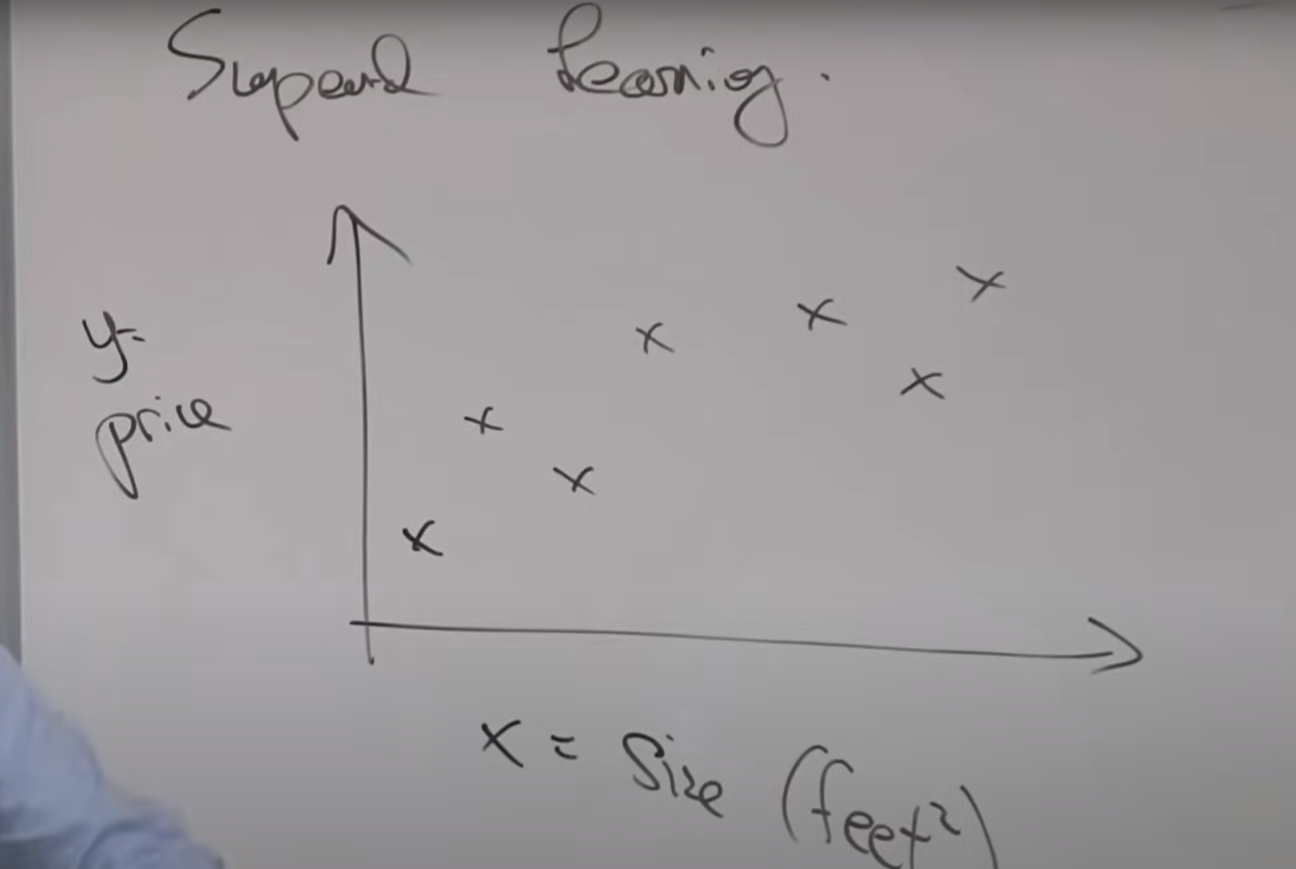 Supervised Learning.
y=
price
x = Size (feet²)